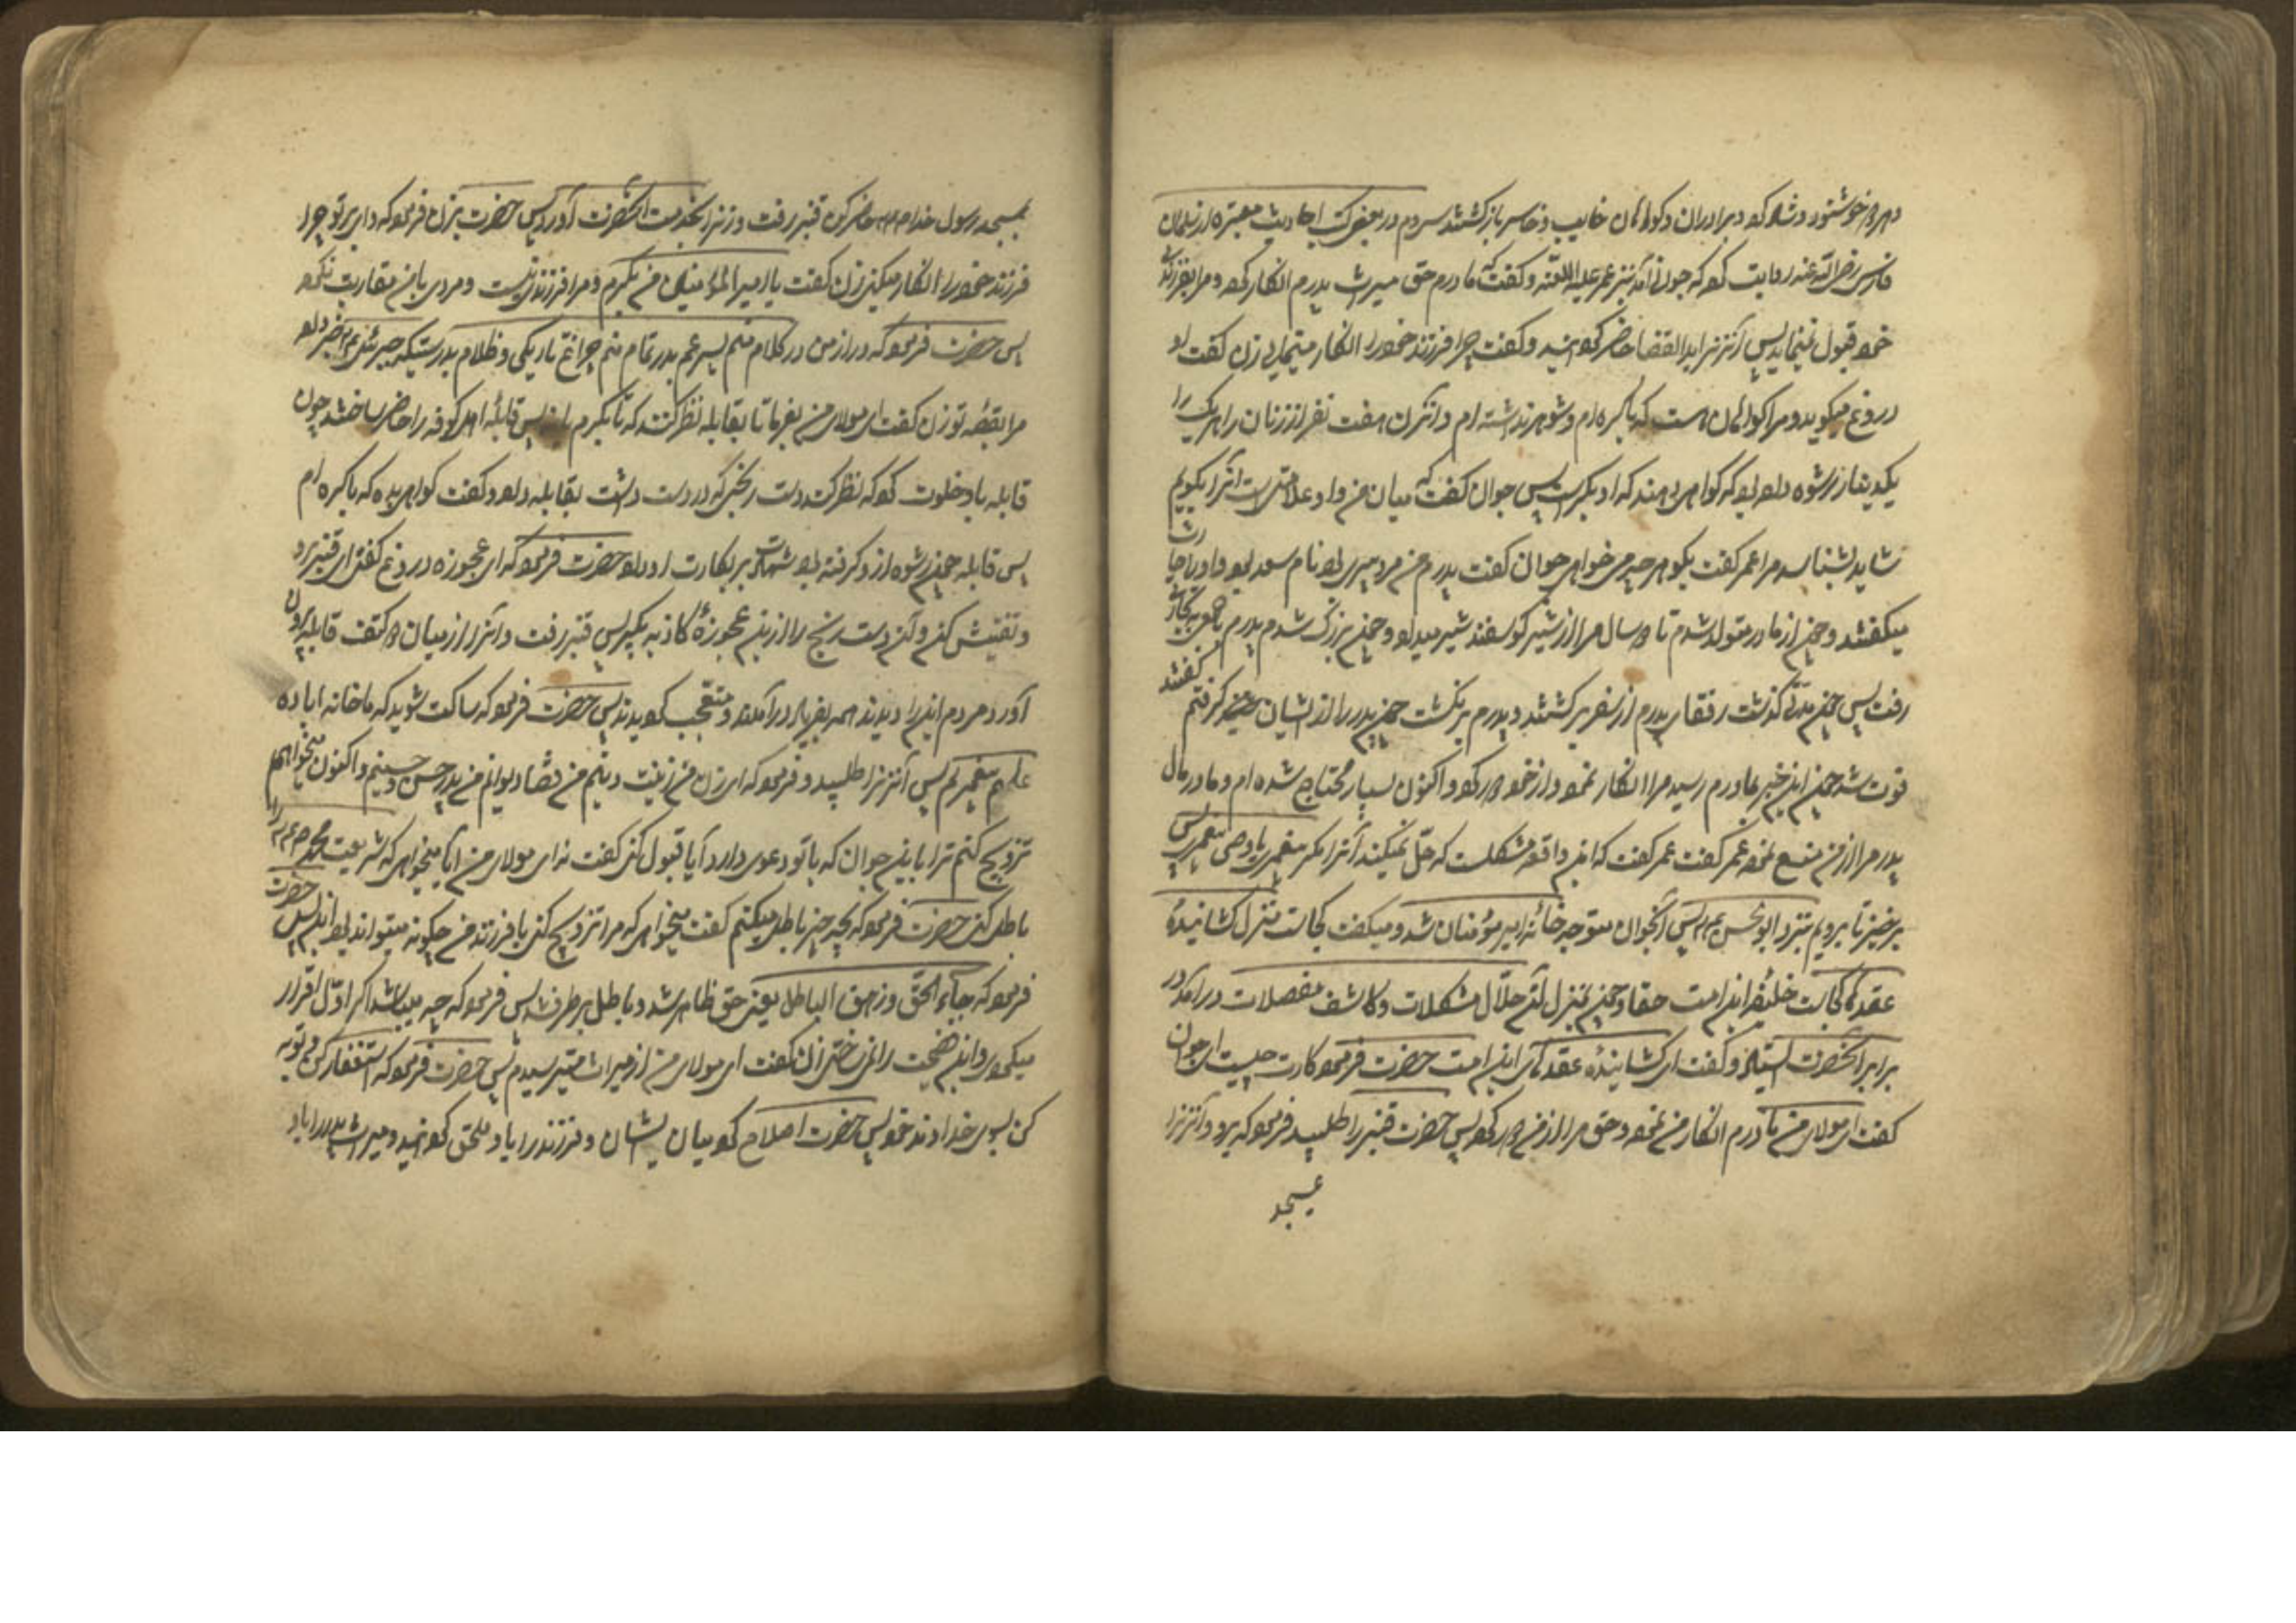 و هر دو خوشنود و شاد کرد و برادران و کواهان خایب و خاسر بازکشتند سیوم در بعضی کتب احادیث معتبره از سلمان
فارسی رضی الله عنه روایت کرد که جوانی آمد نزد عمر علیه اللعنه و کفت که مادرم حق میراث پدرم انکار کرد و مرا بفرزندی
خود قبول نمینماید پس آنزنرا بدار القضا حاضر کردانید و کفت چرا فرزند خود را انکار مینمایی زن کفت او
دروغ میکوید و مرا کواهان هست که باکره ام و شوهر نداشته ام و آنزن هفت نفر از زنان را هر یک را
یکدینار رشوه داده بود که کواهی بدهند که او بکر است پس جوان کفت که میان من و او علامتی است آنرا بکویم
شاید بشناسد مرا عمر کفت بکو هر چه میخواهی جوان کفت پدرم من مردمیری بود نام سعد بود و او را حارث
میکفتند و چون از مادر متولد شدم تا دو سال مرا از شیر کوسفند شیر میداد و چون بزرک شدم پدرم با جمعی بتجارت
رفت پس چون مدتی کذشت رفقای پدرم از سفر برکشتند و پدرم برنکشت چون پدر را از ایشان خبر کرفتم کفتند
فوت شد چون این خبر بمادرم رسید مرا انکار نمود و از خود دور کرد و اکنون بسیار محتاج شده ام و مادر مال
پدر مرا از من منع نمود عمر کفت عمر کفت که این واقعه مشکلست که حل نمیکند آنرا مکر پیغمبری یا وصی پیغمبری پس
برخیز تا برویم بنزد ابو الحسن ع م پس آنجوان متوجه خانه امیر مؤمنان شد و میکفت کجاست منزل کشانیدهٔ
عقدها کجاست خلیفه این امت حقا و چون بمنزل آن حلال مشکلات و کاشف معضلات درآمد در
برابر آنحضرت ایستاد و کفت ای کشانیندهٔ عقدهای این امت حضرت فرمود کارت چیست ای جوان
کفت ای مولای من مادرم انکار من نمود و حق مرا از من دور کرد پس حضرت قنبر را طلبید فرمود که برو و آنزنرا
بمسجد
بمسجد رسول خدا ص حاضر کن قنبر رفت و زنرا بخدمت آنحضرت آورد پس حضرت بزن فرمود که وای بر تو چرا
فرزند خود را انکار میکنی زن کفت یا امیر المؤمنین من بکرم و مرا فرزند نیست و مردی با من مقاربت نکرده
پس حضرت فرمود که دراز مکن در کلام منم پسر عم بدر تمام منم چراغ تاریکی و ظلام بدرستیکه جبرئیل ع م خبر داد
مرا بقصهٔ تو زن کفت ای مولای من بفرما تا بقابله نظر کنند که تا بکرم یا نه پس قابلهٔ اهل کوفه را حاضر ساختند چون
قابله با او خلوت کرد که نظر کند دست رنجی که در دست داشت بقابله داد و کفت کواهی بده که باکره ام
پس قابله چون رشوه از او کرفته بود شهادت بر بکارت او داد حضرت فرمود که ای عجوزه دروغ کفتی ای قنبر برو
و تفتیش کن و آن دست رنج را از این عجوزهٔ کاذبه بکیر پس قنبر رفت و آنرا از میان دو کتف قابله بیرون
آورد مردم اینرا دیدند همه بفریاد درآمدند و متعجب کردیدند پس حضرت فرمود که ساکت شوید که ما خانه آباده
علم پیغمبریم پس آنزنرا طلبید و فرمود که ای زن منم زینت دینم منم قضا دیوانم منم پدر حسن و حسینم و اکنون میخواهم
تزویج کنم ترا باین جوان که با تو دعوی دارد آیا قبول کنی کفت نه ای مولای من آیا میخواهی که شریعت محمد ص را
باطل کنی حضرت فرمود که بچه چیز باطل میکنم کفت میخواهی که مرا تزویج کنی با فرزند من چکونه میتواند بود این پس حضرت
فرمود که جاء الحق و زهق الباطل یعنی حق ظاهر شد و باطل برطرف شد پس فرمود که چه میباشد اکر اوّل اقرار
میکردی و این فضیحت را نمیساختی زن کفت ای مولای من از میراث میترسیدم پس حضرت فرمود که استغفار کن و توبه
کن بسوی خداوند خود پس حضرت اصلاح کرد میان ایشان و فرزند را باو ملحق کردانید و میراث پدر را باو